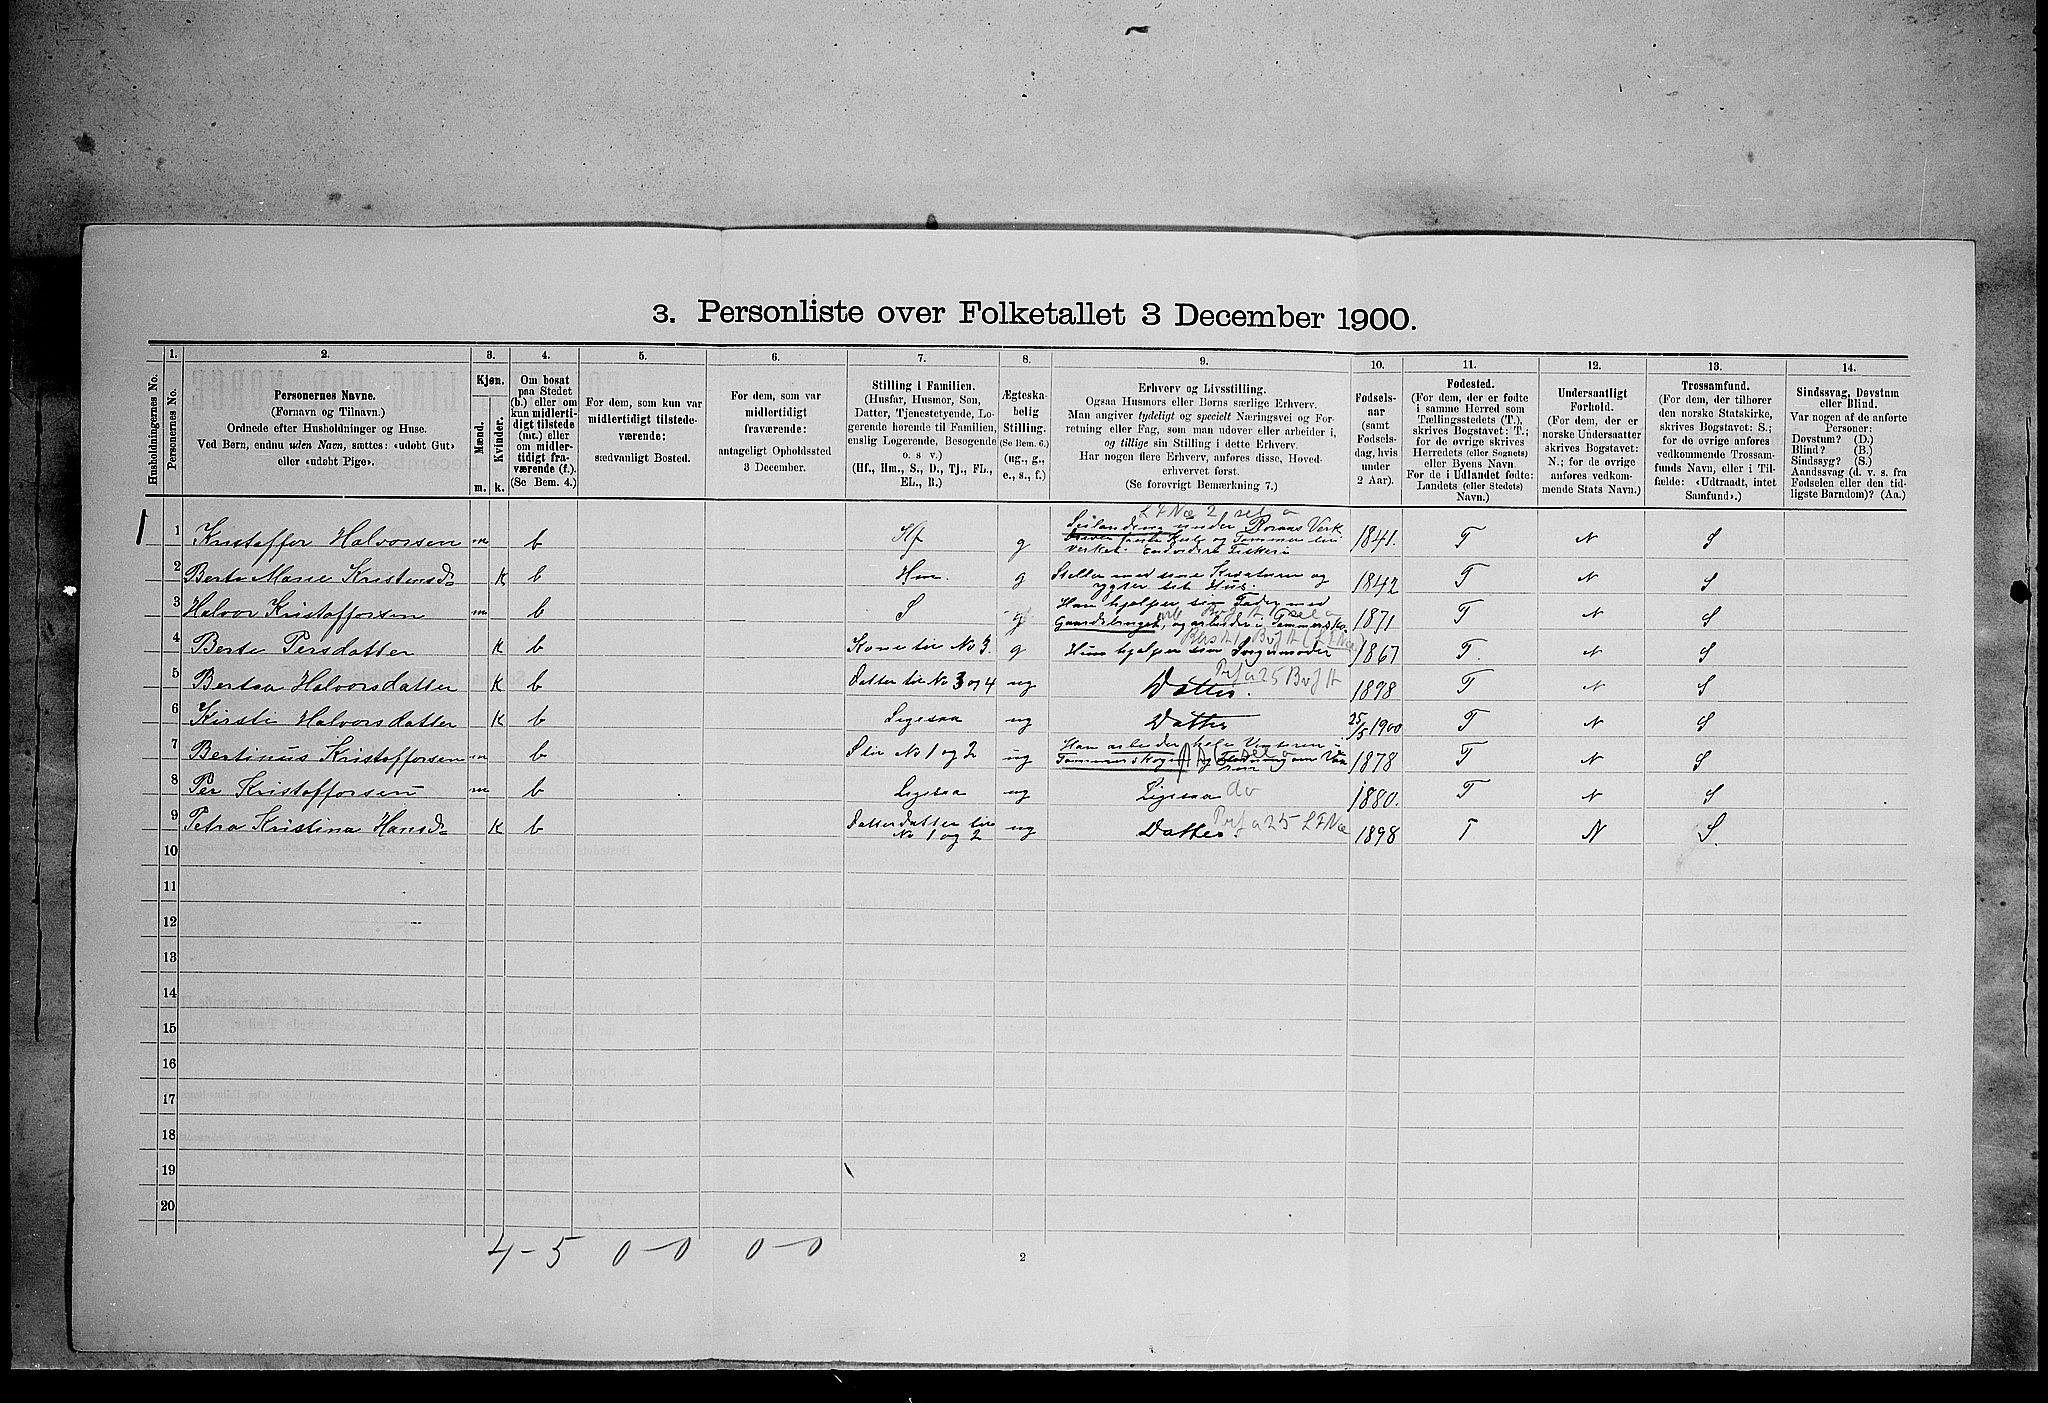 3. Personliste over Folketallet 3 December 1900.
Husholdningernes No.
1.
Personernes No.
2.
Personernes Navne.
(Fornavn og Tilnavn.)
Ordnede efter Husholdninger og Huse.
Ved Børn, endnu uden Navn, sættes: «udøbt Gut»
eller «udøbt Pige».
3.
Kjøn.
Mænd.
Kvinder.
m.
k.
4.
Om bosat
paa Stedet
(b.) eller om
kun midlerti-
digt tilstede
(mt.) eller
om midler-
tidigt fra-
værende (f.).
(Se Bem. 4.)
5.
For dem, som kun var
midlertidigt tilstede-
værende:
sædvanligt Bosted.
6.
For dem, som var
midlertidigt
fraværende:
antageligt Opholdssted
3 December.
7.
Stilling i Familien.
(Husfar, Husmor, Søn,
Datter, Tjenestetyende, Lo-
gerende hørende til Familien,
enslig Logerende, Besøgende
o. s v.)
(Hf., Hm., S., D., Tj., FL.,
EL., B.)
8.
Ægteska-
belig
Stilling.
(Se Bem. 6.)
(ug., g.,
e., s., f.)
9.
Erhverv og Livsstilling.
Ogsaa Husmors eller Børns særlige Erhverv.
Man angiver tydeligt og specielt Næringsvei og For-
retning eller Fag, som man udøver eller arbeider i,
og tillige sin Stilling i dette Erhverv.
Har nogen flere Erhverv, anføres disse, Hoved-
erhvervet først.
(Se forøvrigt Bemærkning 7.)
10.
Fødsels-
aar
(samt
Fødsels-
dag, hvis
under
2 Aar).
11.
Fødested.
(For dem, der er fødte
i samme Herred som
Tællingsstedets (T.),
skrives Bogstavet: T.;
for de øvrige skrives
Herredets (eller Sognets)
eller Byens Navn.
For de i Udlandet fødte:
Landets (eller Stedets)
Navn.)
12.
Undersaatligt
Forhold.
(For dem, der er
norske Undersaatter
skrives Bogstavet:
N.; for de øvrige
anføres vedkom-
mende Stats Navn.)
13.
Trossamfund.
(For dem, der tilhører
den norske Statskirke,
skrives Bogstavet: S.;
for de øvrige anføres
vedkommende Trossam-
funds Navn, eller i Til-
fælde: «Udtraadt, intet
Samfund».)
14.
Sindssvag, Døvstum
eller Blind.
Var nogen af de anførte
Personer:
Døvstum? (D.)
Blind? (B.)
Sindssyg? (S.)
Aandssvag (d. v. s. fra
Fødselen eller den tid-
ligste Barndom)? (Aa.)
1 1 Kristoffer Halvorsen m b Hf g Røraas Verk 1841. T N S
2 Berte Marie K b Hm. g Steller med sine Kreaturer og 1842 T N S
3 Halvor Kristoffersen m b S g Han hjælper sin Fader med Gaardsbruget, og arbeider i 1871 T N S
4 Berte Persdatter K b Kone til No 3. g Hun hjælper sin 1867 T. N S
5 Bertea Halvorsdatter K b Datter til No 3 og 4 ug Datter. 1898 T N S
6 Kirsti Halvorsdatter K b Ligesaa ug Datter 25/5 1900 T N S
7 Bertinus Kristoffersen m b S til No 1 og 2 ug Han arbeider hele Vinteren i 1878 T N S
8 Per Kristoffersen m b Ligesaa ug Ligesaa do 1880. T N S
9 Petra Kristina Hansd. K b Datterdatter til No 1 og 2 ug Datter. 1898 T N S.
10
11
12
13
14
15
16
17
18
19
20
4-5 0-0 0-0
2